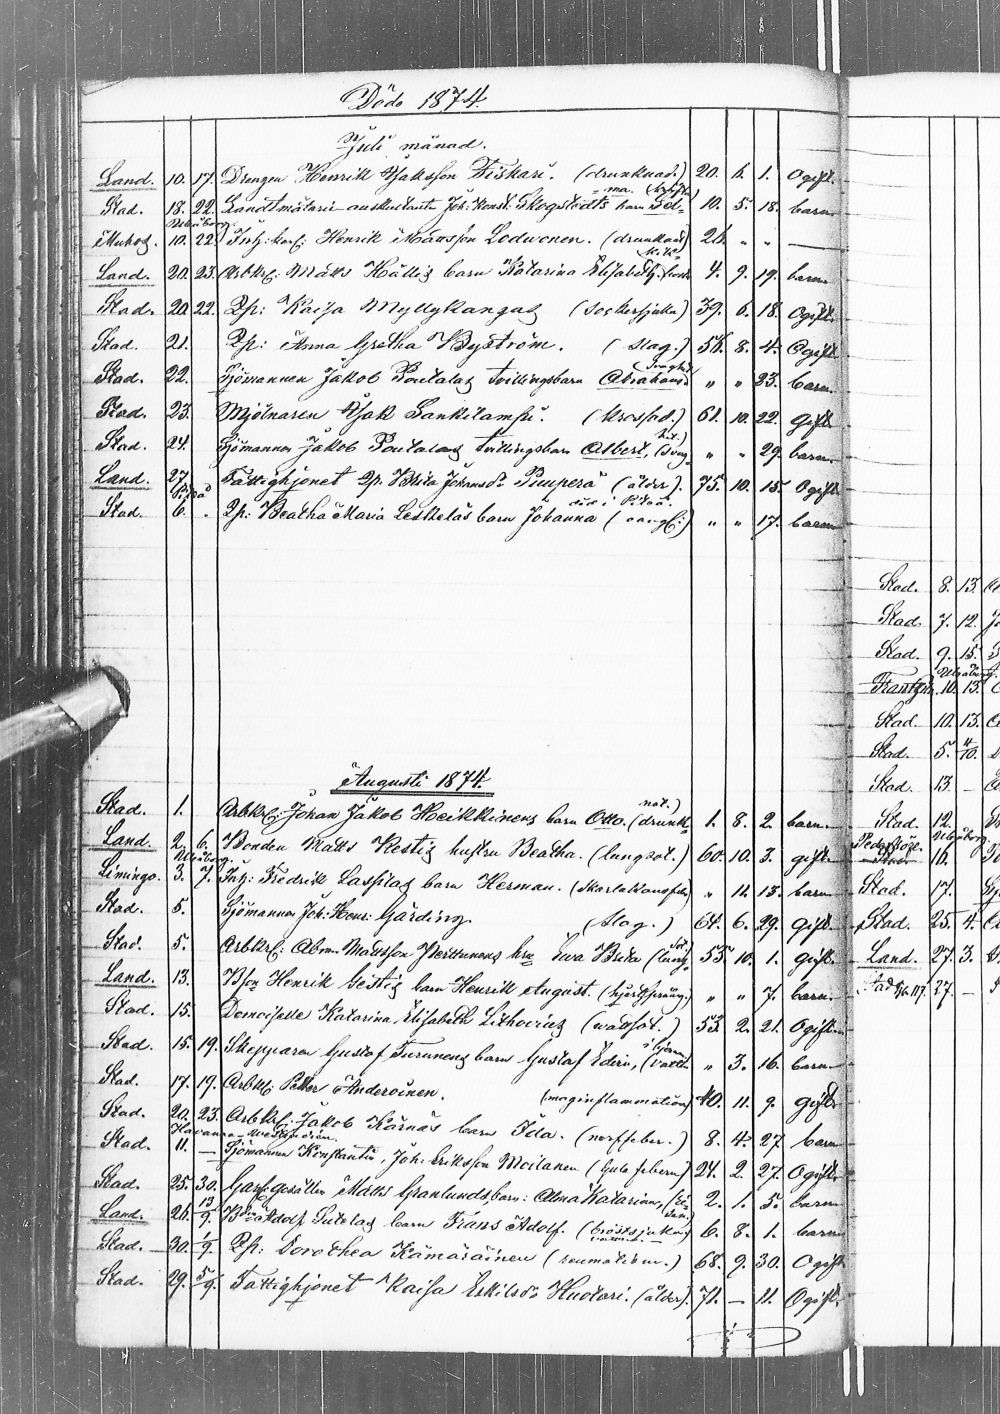 Döde 1874.
Juli månad.
Land. 10. 17. Drengen Henrik Isaksson Fiskari. (drunknad.) 20. 6. 1. Ogift.
Stad. 18. 22. Landtmäteri-auskultanten Joh: Konst: Skogstedts barn 10. 5. 18. barn
Uleåborg.
Muhos. 10. 22. Inh: karl: Henrik Mattsson Lodwonen. (drunknad) 26 " " —
Land. 20. 23. Arbkrl: Matts Hättis barn Katarina Elisabeth. 4. 9. 19. barn
Stad. 20. 22. Pp: Kaisa Myllykangas (Sockersjuka) 39. 6. 18. Ogift.
Stad. 21. Pp: Anna Gretha Byström. (slag.) 56. 8. 4. Ogift
Stad. 22. Sjömannen Jakob Poutalas tvillingsbarn Abraham " " 23. barn
Stad. 23. Mjölnaren Isak Lankilampi. 61. 10. 22. Gift
Stad. 24. Sjömannen Jakob Poutalas tvillingsbarn Albert, " " 29. barn
Land. 27. Fattighjonet Pp. Brita Johansd:r Pumperä (ålder). 75. 10. 15. Ogift
Piteå död i Piteå.
Stad. 6. . Pp: Beatha Maria Leskeläs barn Johanna " " 17. barn
Augusti 1874.
Stad. 1. Arbkrl: Johan Jakob Heikkinens barn Otto. 1. 8. 2. barn
Land. 2. 6. Bonden Matts Kestis hustru Beatha. (lungsot.) 60. 10. 3. gift
Uleåborg.
Limingo. 3. 7. Inh: Fredrik Lassilas barn Herman. " 11. 13. barn
Stad. 5. Sjömannen Joh: Henr: Gärding (slag.) 64. 6. 29. Gift
Stad. 5. Arbkrl: Abm. Mattsson Perttunens hru Ewa Brita 53. 10. 1. gift
Land. 13. Bson Henrik barn Henrik August. " " 7. barn
Stad. 15. Demoiselle Katarina Elisabeth Lithovius (wattsot.) 53. 2. 21. Ogift
Stad. 15. 19. Skepparen Gustaf Turunens barn Gustaf Edvin, " 3. 16. barn
Stad. 17. 19. Arbkl: Petter Anderoinen. (maginflammation) 40. 11. 9. Gift
Stad. 20. 23. Arbkrl: Jakob Kärnäs barn Ida. (nerffeber.) 8. 4. 27. barn
Havanna Westindien
Stad. 11. — Sjömannen Konstantin, Joh: Eriksson Moilanen (Gula febern) 24. 2. 27. Ogift
Stad. 25. 30. Garf. gesällen Matts Granlunds barn: Alma Katarina, 2. 1. 5. barn
Land. 26. 13/9. Bson Adolf barn Frans Adolf. (bröstsjukan) 6. 8. 1. barn
Stad. 30. 1/9. Pp: Dorothea Kämäräinen (reumatism.) 68. 9. 30. Ogift
Stad. 29. 5/9. Fattighjonet Kaisa Eskilsd:r Huotari. (ålder). 71. — 11. Ogift.
Stad. 8. 13.
Stad. 7. 12.
Stad. 9. 15.
Uleåborg.
Frantzila 10. 13.
Stad. 10. 13.
Stad. 5. 4/10.
Stad. 13. —
Stad. 12.
Uleåborg
16.
Stad. 17.
Stad. 25. 4.
Land. 27. 3.
27. —